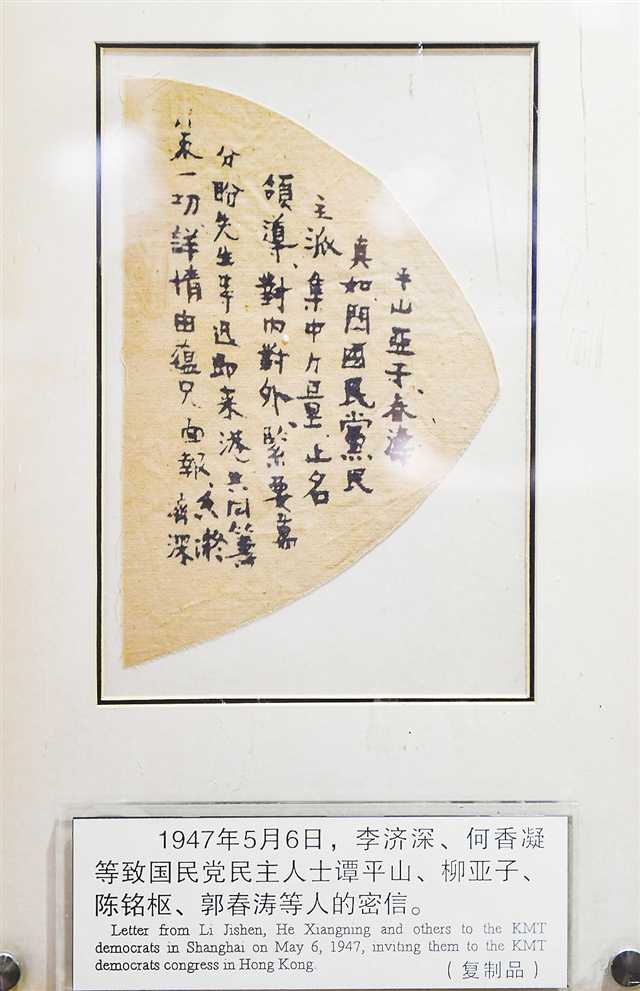 平山亞子、春濤
真如 國民黨民
主派集中力量正名
領導、對內對外、緊要萬
分盼先生等迅即来港共同籌
策一切詳情由蘊兄面報
香凝
濟深
1947年5月6日，李济深、何香凝
等致国民党民主人士谭平山、柳亚子、
陈铭枢、郭春涛等人的密信。
Letter from Li Jishen, He Xiangning and others to the KMT
democrats in Shanghai on May 6, 1947, inviting them to the KMT
democrats congress in Hong Kong.
（复制品）